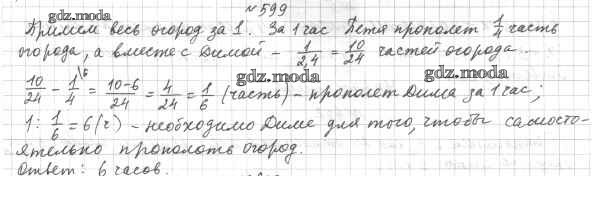 №599
Примем весь огород за 1. За 1 час Петя прополет 1/4 часть
gdz.moda
огорода, а вместе с Димой - 1/2,4 = 10/24 частей огорода.
gdz.moda gdz.moda
10/24 - 1/4 \6 = 10-6/24 = 4/24 = 1/6 (часть) - прополет Дима за 1 час;
1 : 1/6 = 6 (ч) - необходимо Диме для того, чтобы самосто-
ятельно прополоть огород.
Ответ: 6 часов.